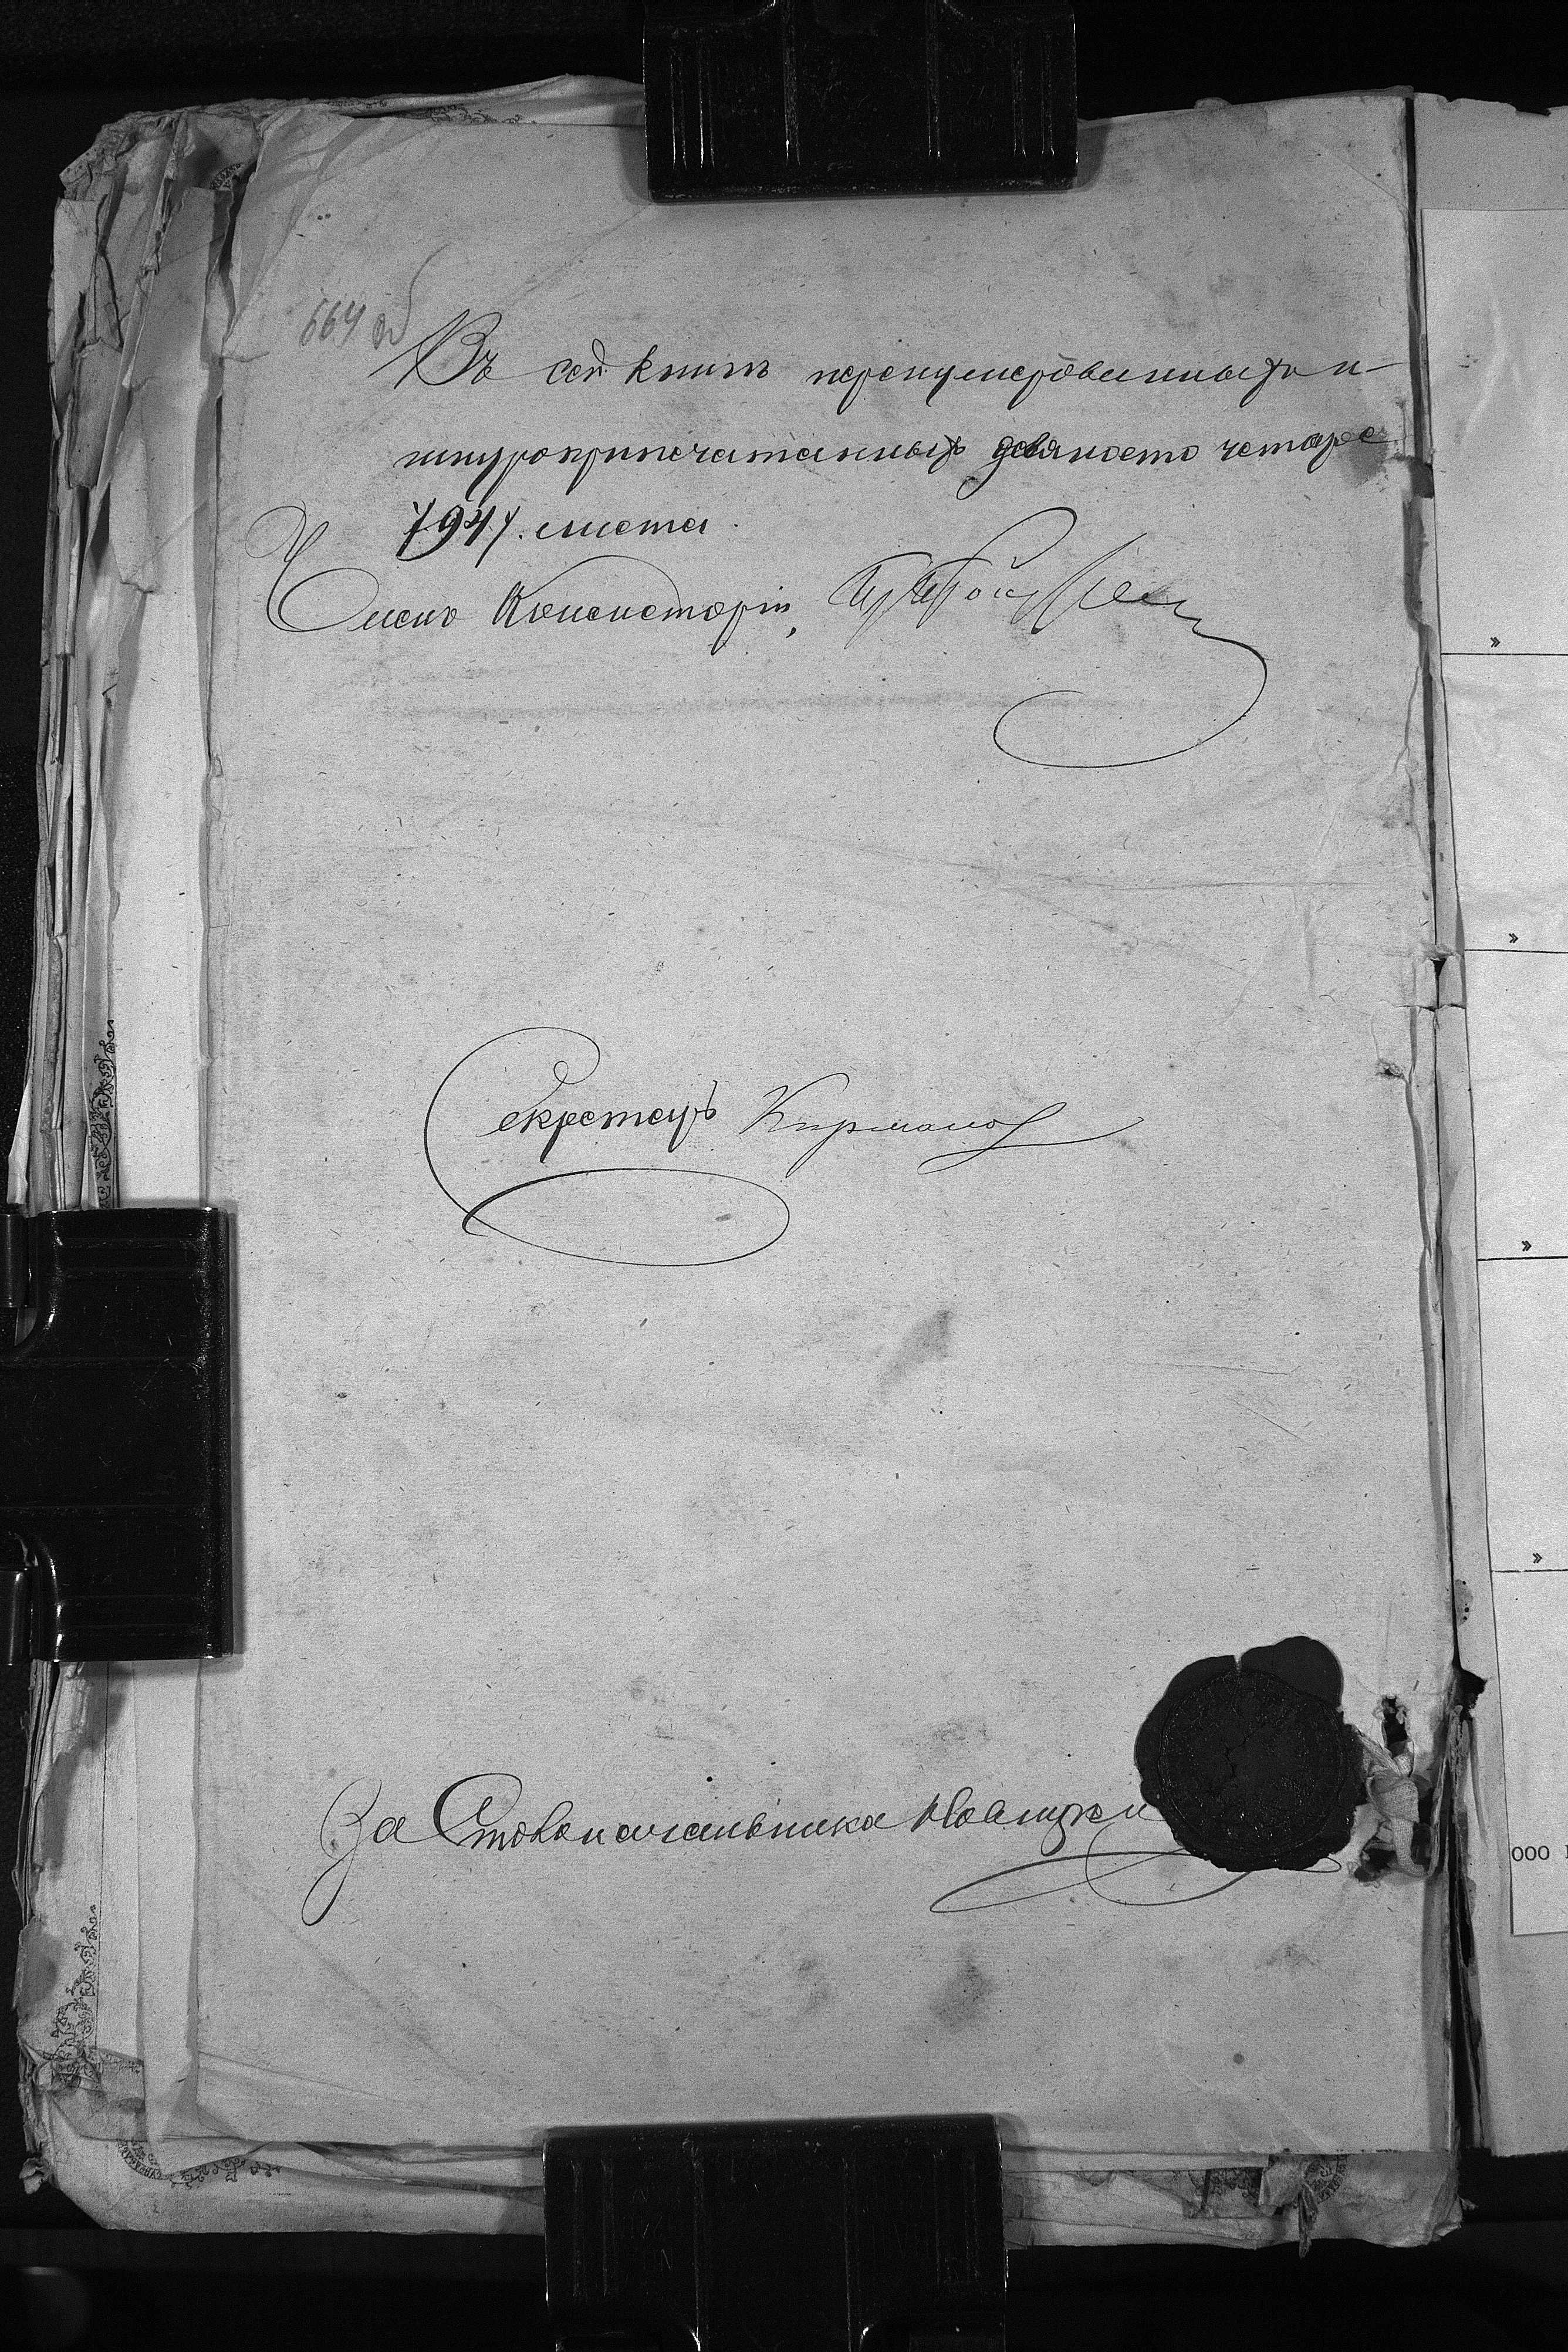 664 об
Въ сей книгѣ перенумерованныхъ и
шнуроприпечатанныхъ девяносто четыре
/94/. листа.
Членъ Консисторіи,
Секретарь Кирманов
За Столоначальника
»
»
»
»
000